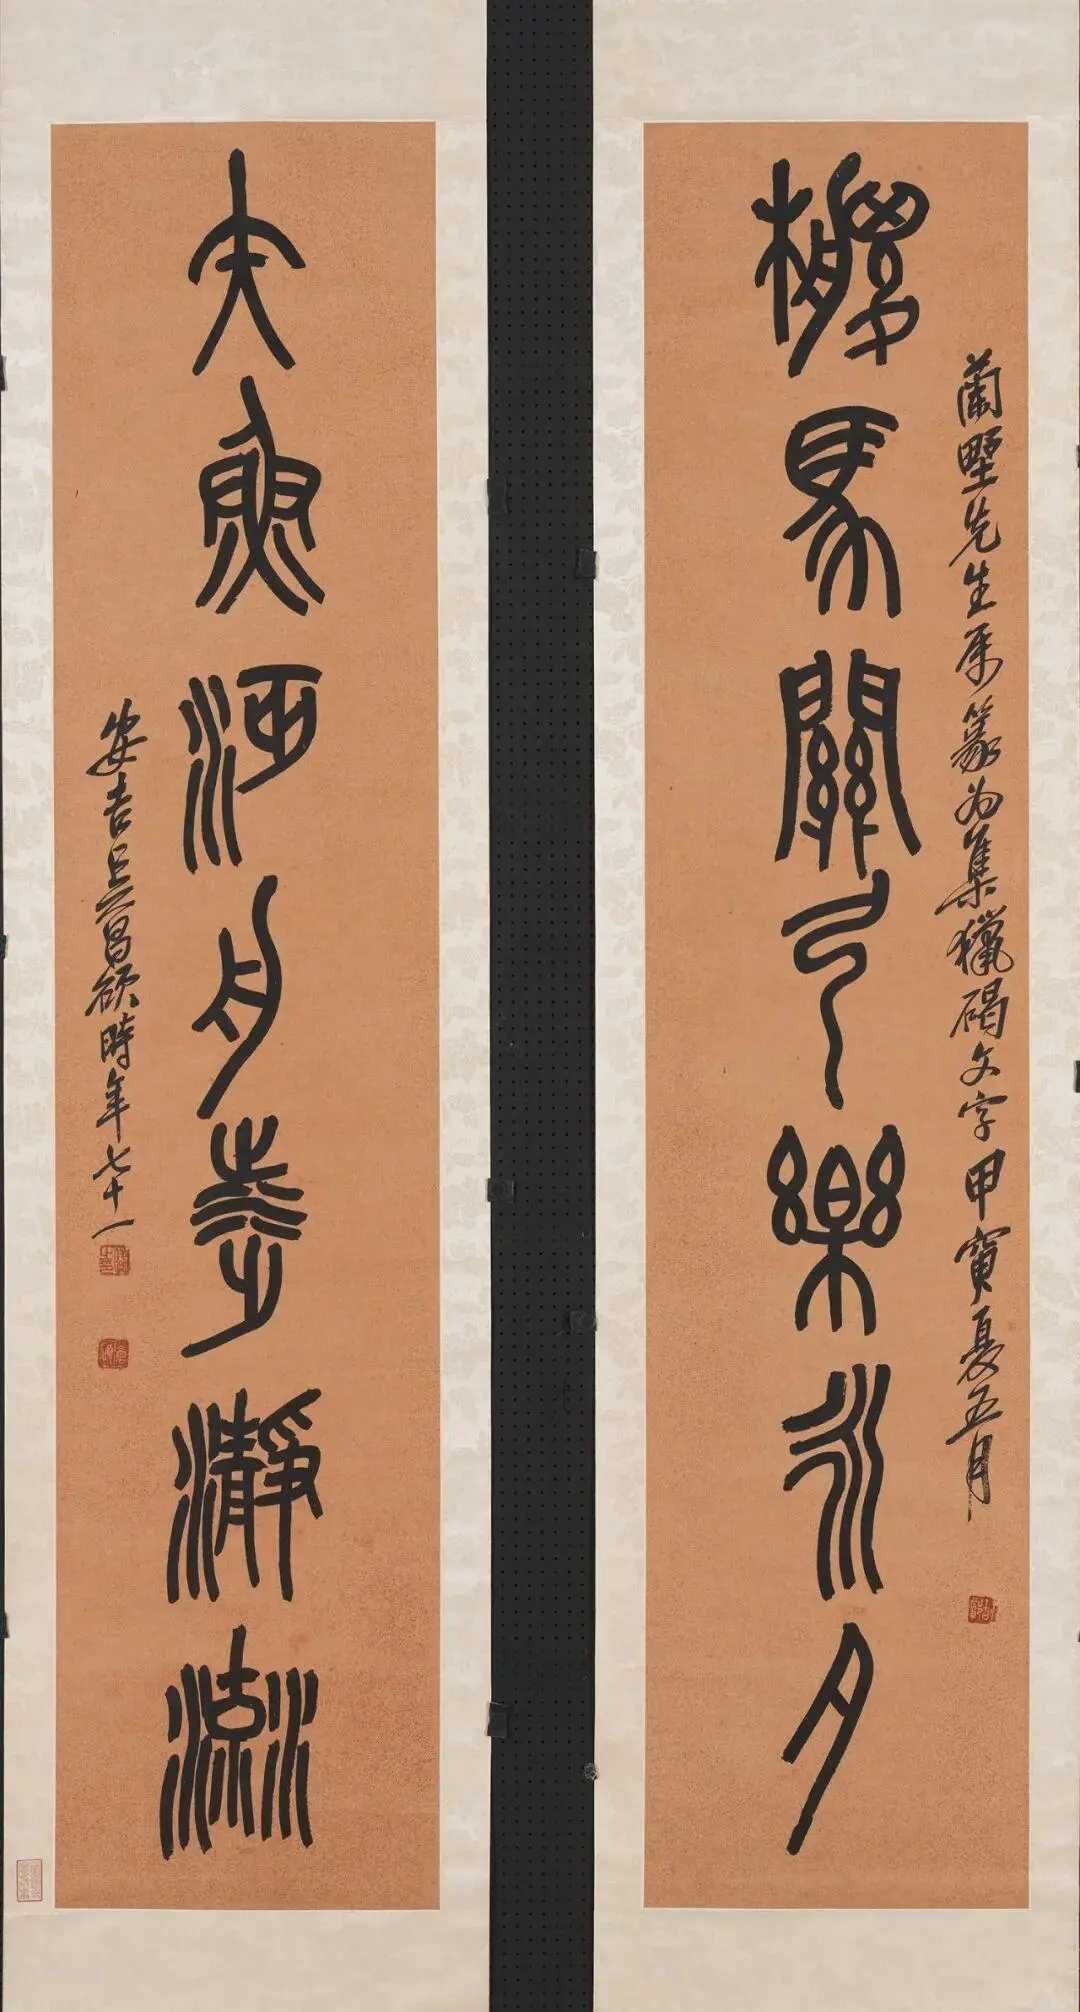 馬關弓樂永夕
蘭墅先生屬篆為集獵碣文字甲寅夏五月
矢魚沔舟瀞流
安吉吳昌碩時年七十一